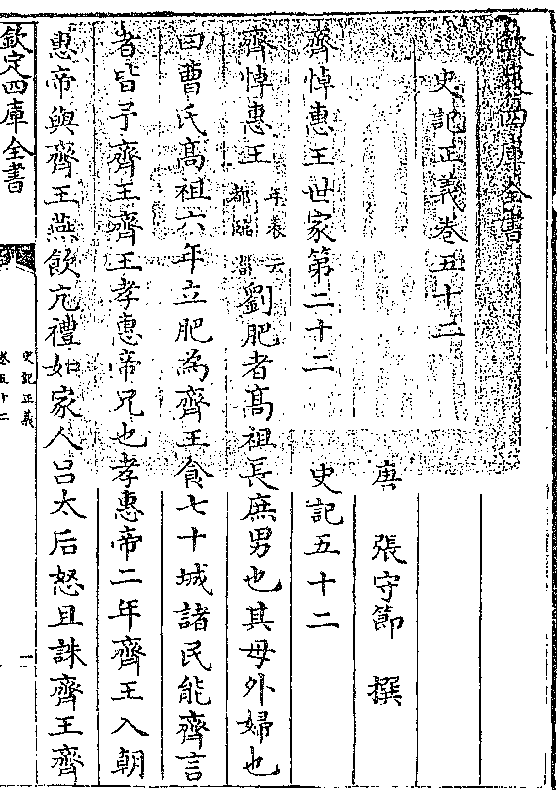 欽定四庫全書
史記正義卷五十二
唐 張守節 撰
齊悼惠王世家第二十二 史記五十二
齊悼惠王年表云都臨淄劉肥者髙祖長庶男也其母外婦也
曰曹氏髙祖六年立肥為齊王食七十城諸民能齊言
者皆予齊王齊王孝惠帝兄也孝惠帝二年齊王入朝
惠帝與齊王燕飲亢禮如家人吕太后怒且誅齊王齊
欽定四庫全書
史記正義
卷五十二
一